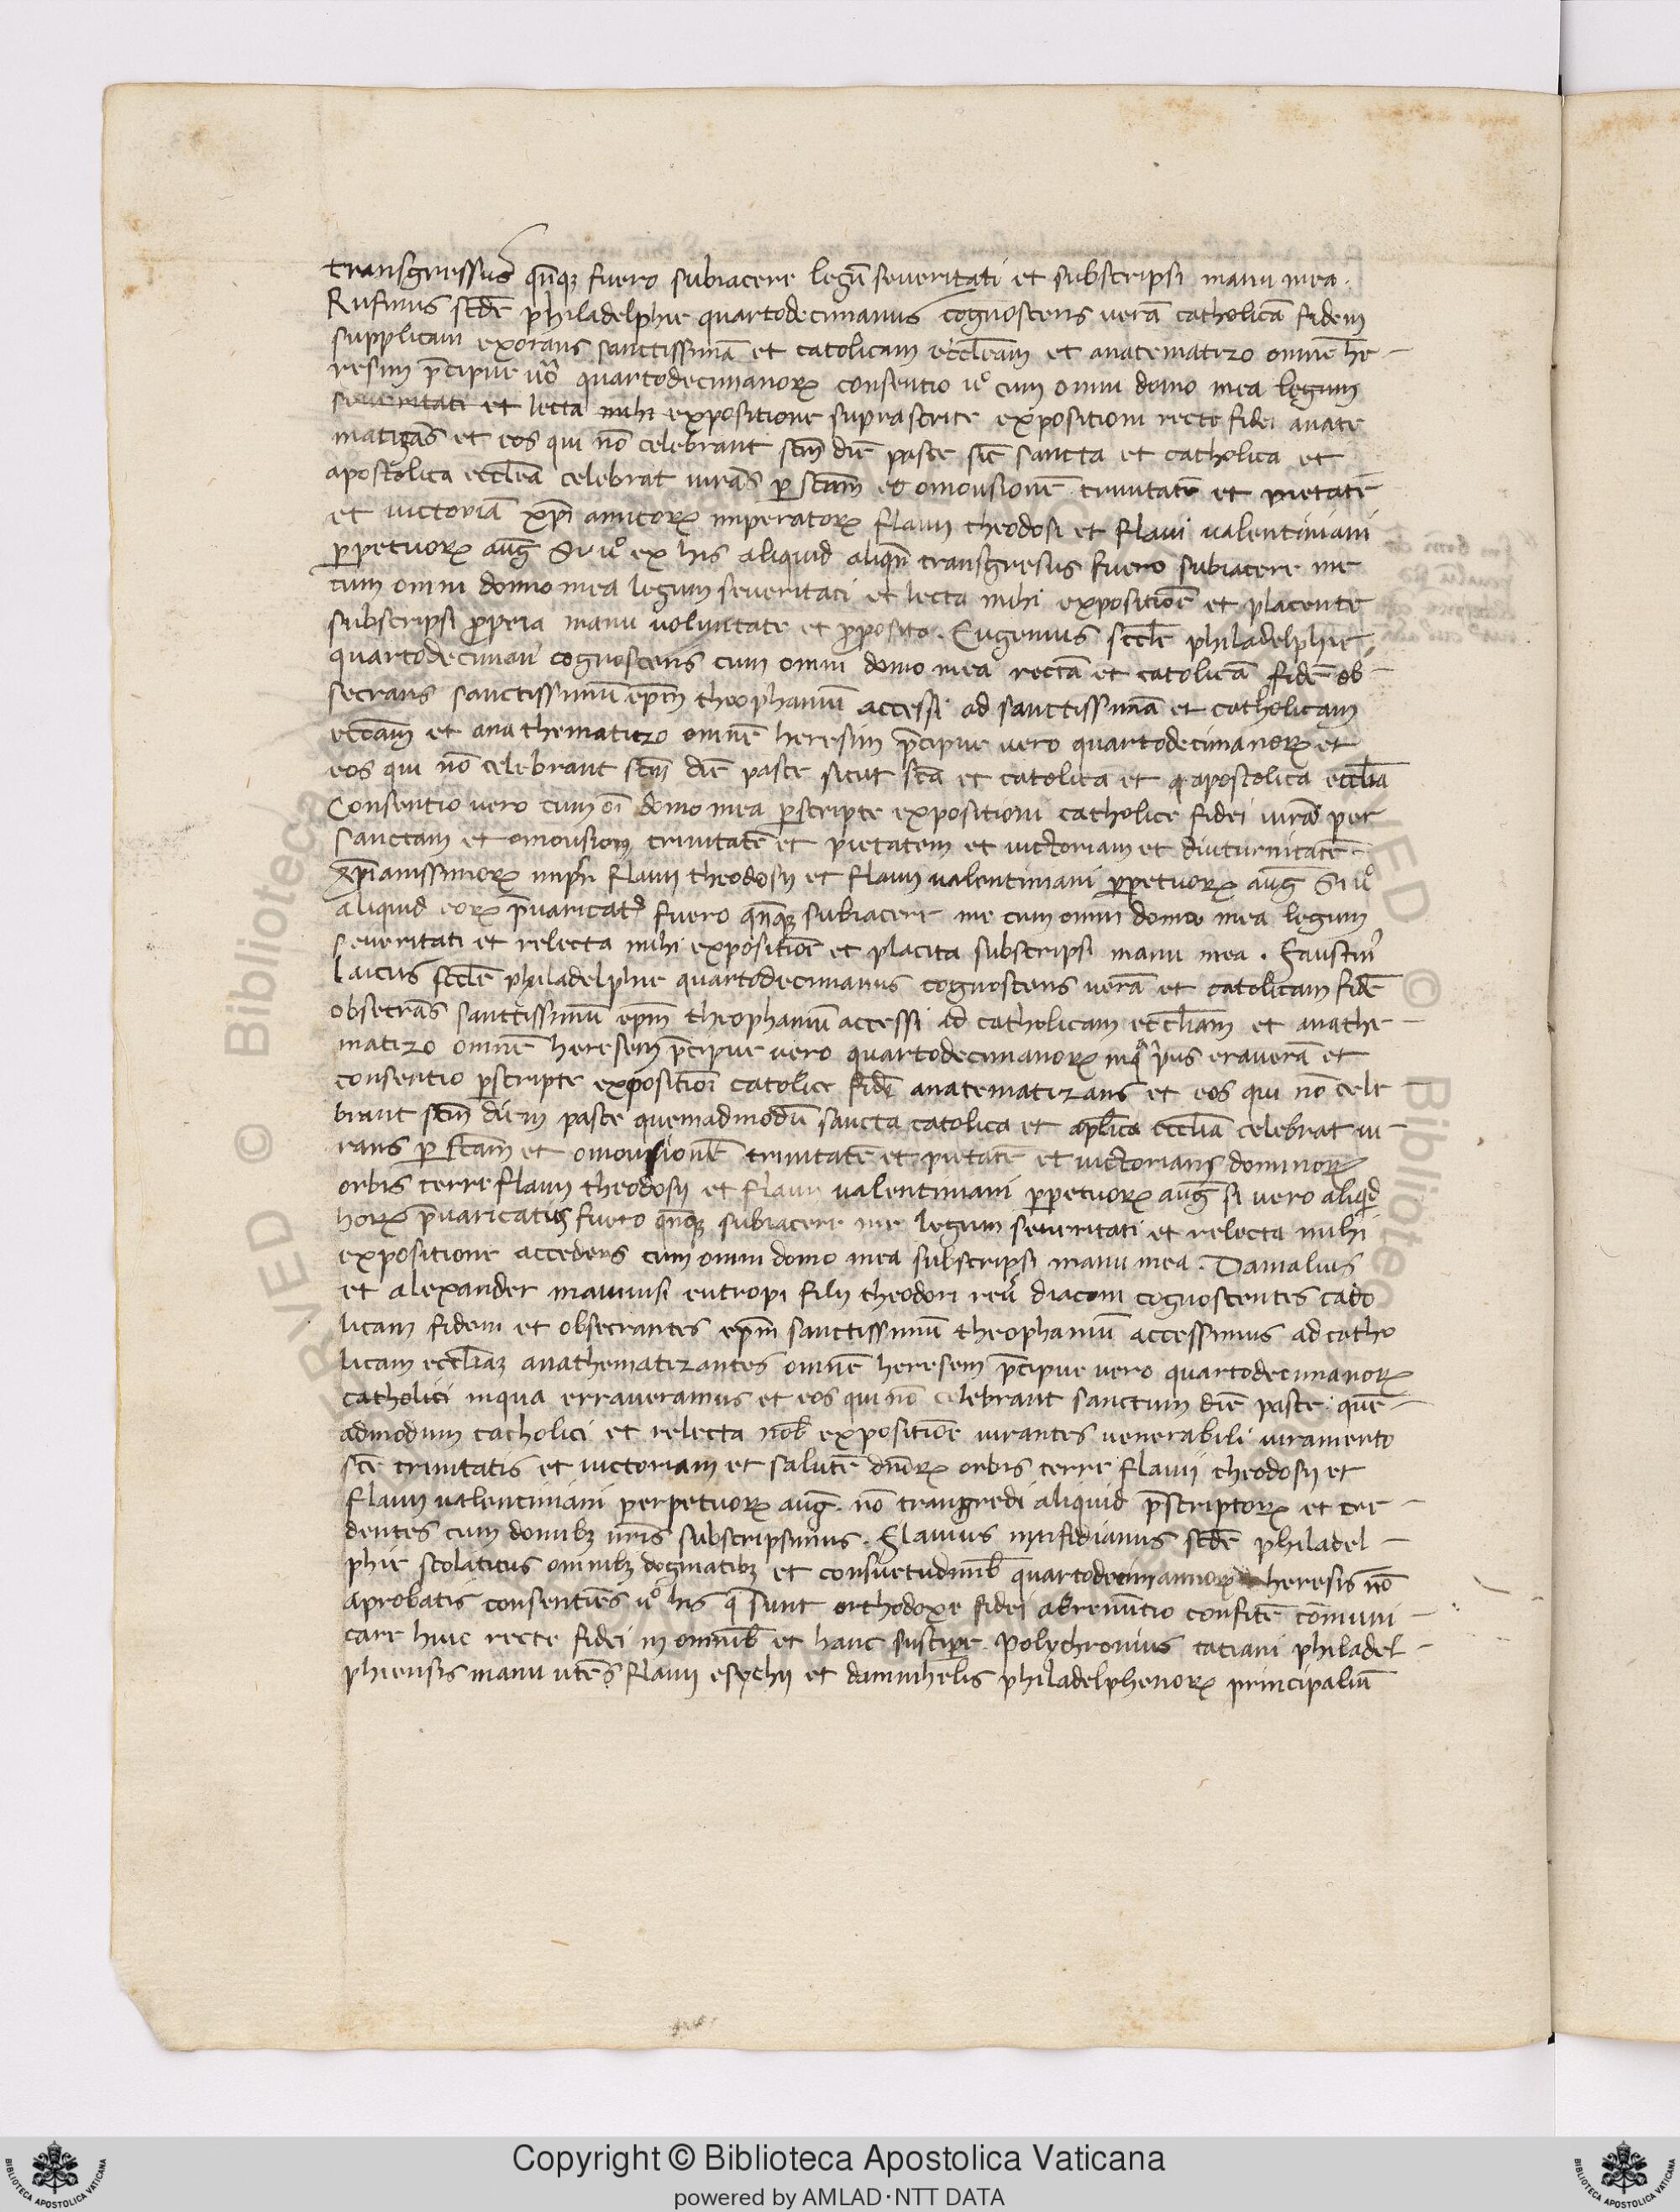 transgressus qn̄qꝫ fuero subiacere legū seueritati et subscripsi manu mea.
Rufinus scd̄e philadelphie quartodecimanus cognoscens verā catholicā fidem
supplicam exorans sanctissimā et catolicam eccleām et anatematizo omnē he-
resim p̄cipue ūo quartodecimanoꝝ consentio uͦ cum omni domo mea legum
seueritati et lecta mihi expositione suprascrite expositioni recte fidei anate
matiзās et eos qui nō celebrant scm̄ diē pasce sic̄ sancta et catholica et
apostolica eccleā celebrat iurās ꝑ scām et omousionē trinitatē et pietatē
et uictoriā xp̄i amicoꝝ imperatoꝝ flauii theodosi et flaui valentiniani
ꝑpetuoꝝ auḡ Si uͦ ex his aliquid aliqn̄ transgresus fuero subiacere me
cum omni domo mea legum seueritaci et lecta mihi expositiōe et placente
subscripsi ꝓpeia manu voluntate et ꝓposito. Eugenius sccl̄e philadelphie
quartodeciman̄ cognoscens cum omni domo mea rectā et catolicā fidē ob-
secrans sanctissimū ep̄m theophaniū accessi ad sanctissimā et catholicam
eccām et anathematizo omnē heresim p̄cipue vero quartodecimanoꝝ et
eos qui nō celebrant scm̄ diē pasce sicut sc̄a et catolica et apostolica eccl̄ia
Consentio vero cum oī domo mea ꝑscripte expositioni catholice fidei iurās per
sanctam et omousion trinitatē et pietatem et uictoriam et diuturnitatē-
xp̄ianissimoꝝ imp̄r flauii theodosij et flauii valentiniani ꝑpetuoꝝ auḡ Si uͦ
aliquid eoꝝ p̄uaricatꝰ fuero qn̄qꝫ subiacere me cum omni domo mea legum
seueritati et relecta mihi expositiōe et placita subscripsi manu mea. Faustinꝰ
laicus sccl̄e philadelphie quartodecimanus cognoscens verā et catolicam fidē
obsecrās sanctissimū ep̄m theophaniū accessi ad catholicam eccl̄iam et anathe-
matizo omnē heresem p̄cipue vero quartodecimanoꝝ inq̄ p̄us eraverā et
consentio ꝑscripte expositiōi catolice fidei anatematizans et eos qui nō cele-
brant scm̄ diem pasce quemadmodū sancta catolica et ap̄lica eccl̄ia celebrat iu-
rans ꝑ scām et omousionē trinitatē et pietatē et uictorians dominoꝝ
orbis terre flauii theodosij et flaui valentiniani ꝑpetuoꝝ auḡ si vero aliqid
hoꝝ p̄uaricatus fuero qn̄qꝫ subiacere me legum seueritati et relecta mihi
expositione accedens cum omni domo mea subscripsi manu mea. Damalius
et alexander eutropi filij theodori reu̇ diaconi cognoscentes cado
licam fidem et obsecrantes ep̄m sanctissimū theophaniū accessimus ad catho
licam eccl̄iaꝫ anathematizantes omnē heresem p̄cipue vero quartodecimanoꝝ
catholici inqua erraueramus et eos qui nō celebrant sanctum diē pasce. quē-
admodum catholici et relecta nob̄ expositiōe iurantes venerabili iuramento
sc̄e trinitatis et uictoriam et salutē dn̄oꝝ orbis terre flauii theodosij et
flauii valentiniani perpetuoꝝ auḡ. nō trangredi aliquid p̄scriptoꝝ et cre-
dentes cum domibꝫ nr̄is subscripsimus. Flauius scd̄e philadel-
phie scolaticus omnibꝫ dogmatibꝫ et consuetudinib̄ quartodecimannoꝝ heresis nō
aprobatis consentiēs uͦ his q̄ sunt orthodoxe fidei abrenūtio confitē cōmuni-
care huic recte fidei in omnib̄ et hanc suscipe. Polychronius tatiani philadel-
phiensis manu utēs flauii esychij et dannihelis philadelphenoꝝ principaliū
Copyright © Biblioteca Apostolica Vaticana
powered by AMLAD·NTT DATA